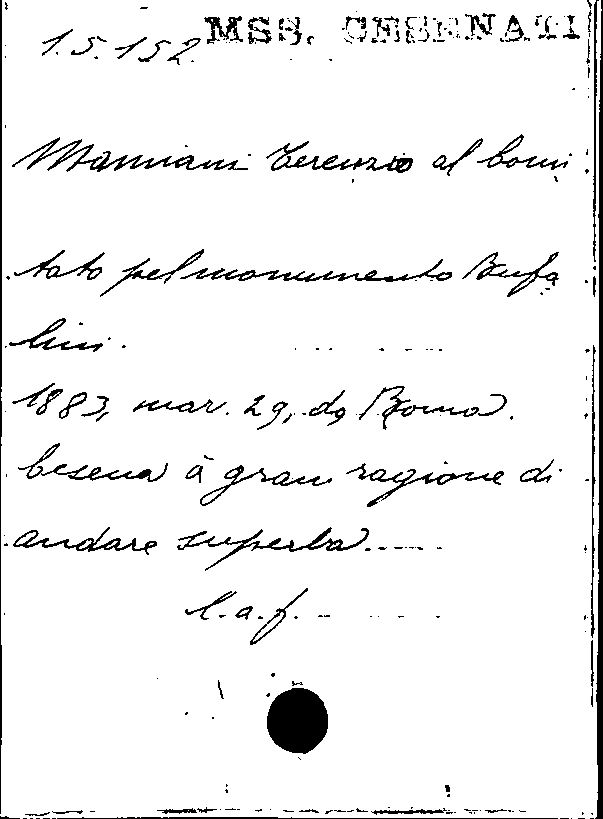 1.5.152. MSS. CESENATI
Mamiani Terenzio al Comi
tato pel monumento Bufa
lini.
1883, mar. 29, da Roma.
Cesena à gran ragione di
andare superba.....
l.a.f.